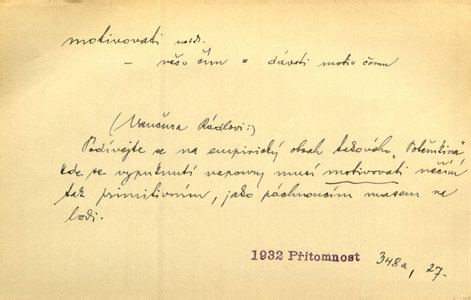 motivovati ned.
— něco čím = dávati motiv čemu
(Vančura Rádlovi:)
Podívejte se na empirický obsah takového „Potěmkina",
kde se vypuknutí vzpoury musí motivovati něčím
tak primitivním, jako páchnoucím masem na
lodi.
1932 Přítomnost 348a, 27.